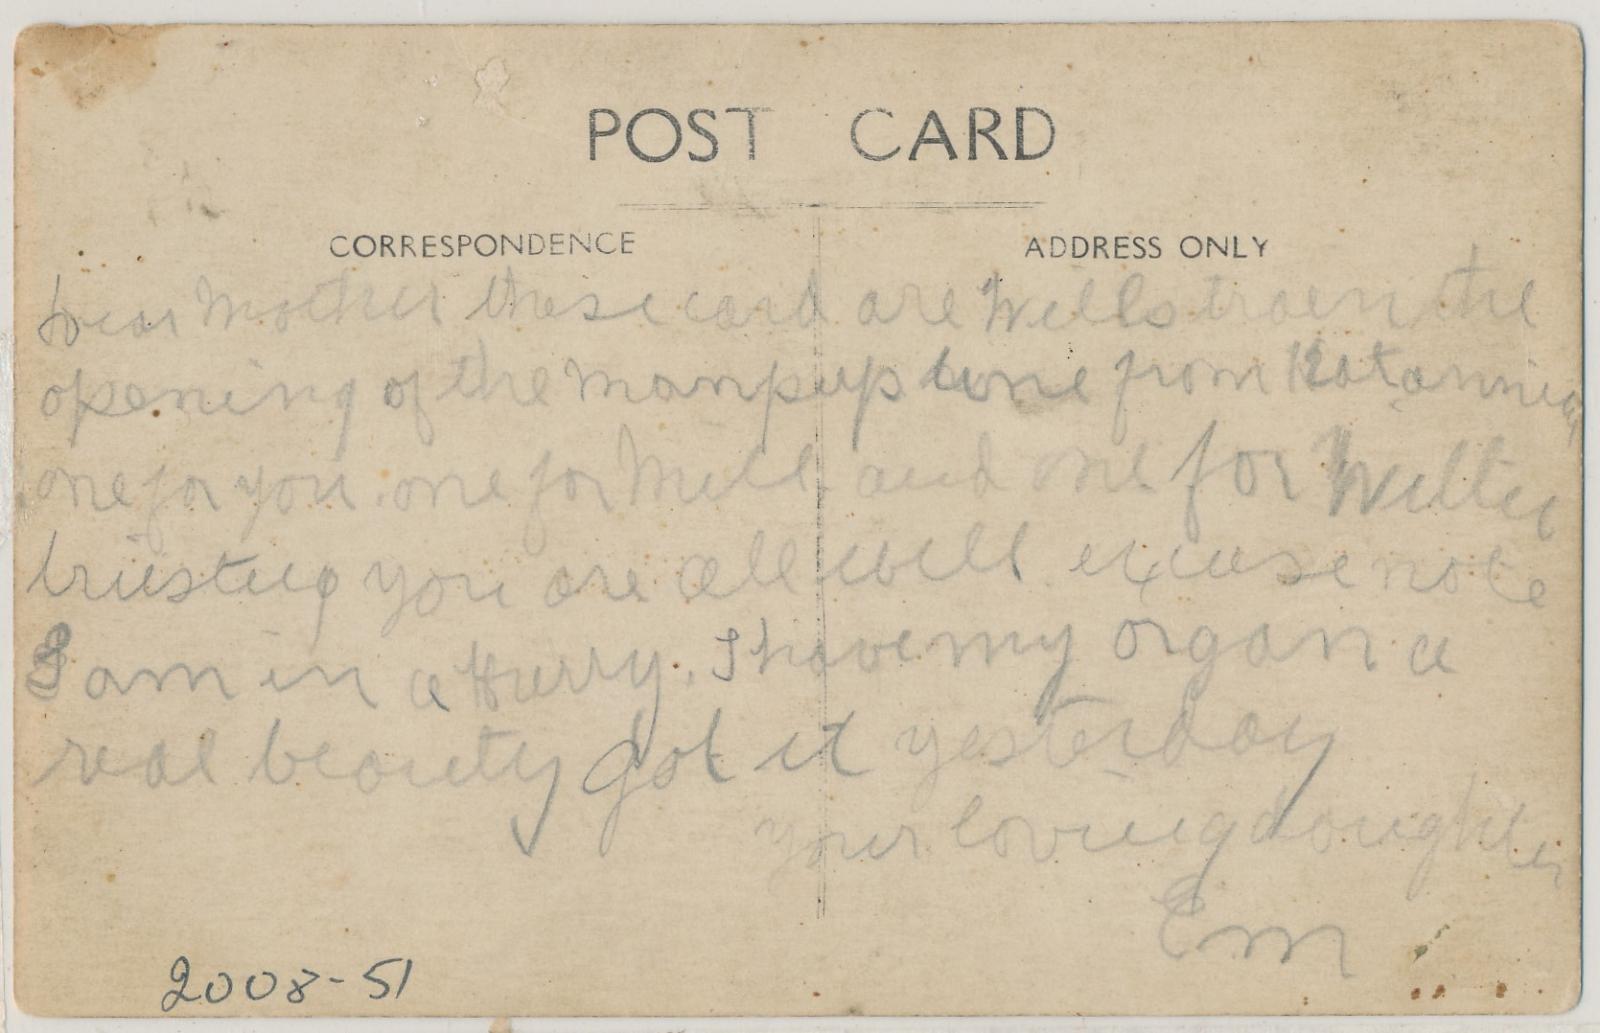 POST CARD
CORRESPONDENCE
ADDRESS ONLY
Dear Mother these card are Wills traen the
opening of the Manpup line from Katanning
one for you. one for Mill. and one for Willie
trusting you are all well excuse note
I am in a Hurry. I have my organ a
real beauty got it yesterday
your loving daughter
Em
2008-51